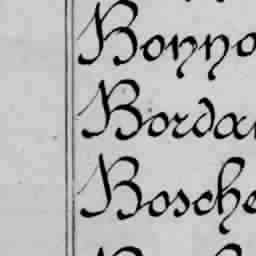 Bonno
Borda
Bosche